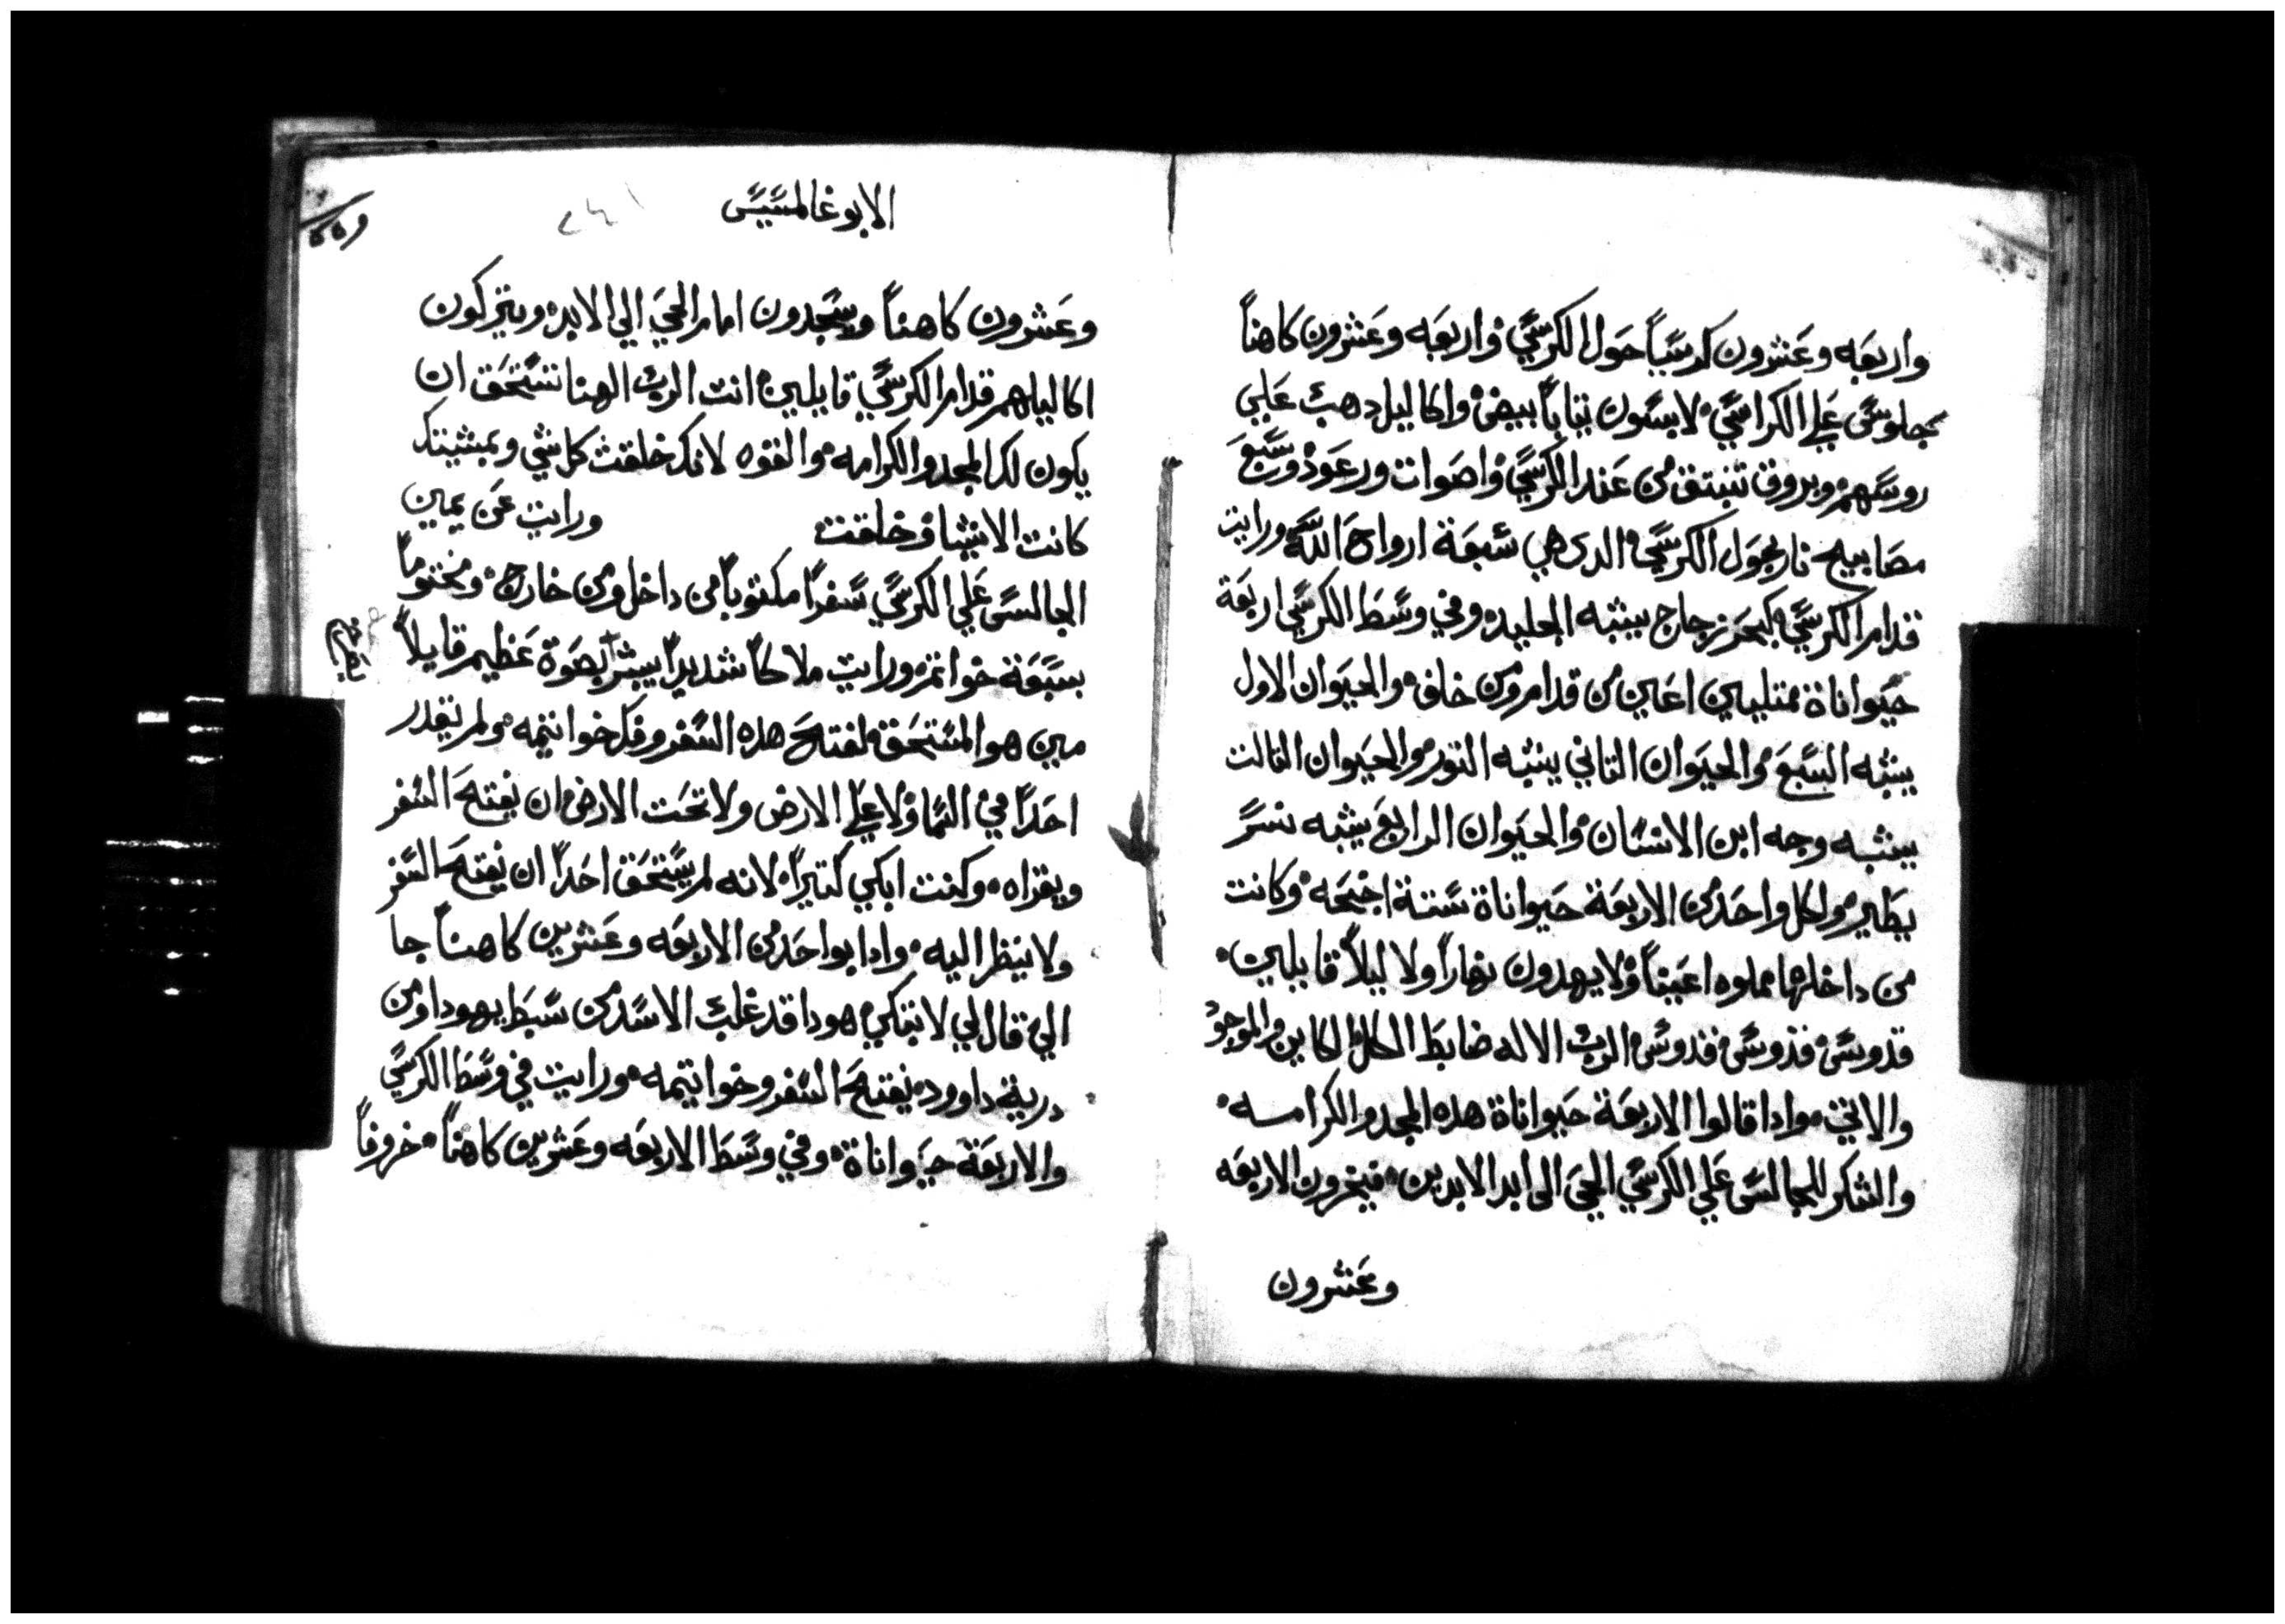 واربعه وعشرون كرسياً حول الكرسي واربعه وعشرون كاهناً
جلوس علي الكراسي لابسون تياباً بيض واكاليل دهب علي
روسهم وبروق تنبتق من عند الكرسي واصوات ورعود وسبع
مصابيح نار حول الكرسي الدى هي سبعة ارواح الله ورايت
قدام الكرسي كبحر زجاج يشبه الجليد وفي وسط الكرسي اربعة
حيواناة ممتليين اعاين من قدام ومن خلف والحيوان الاول
يشبه السبع والحيوان التاني يشبه التور والحيوان التالت
يشبه وجه ابن الانسان والحيوان الرابع يشبه نسر
يطير ولكل واحد من الاربعة حيواناة ستة اجنحه وكانت
من داخلها مملوه اعيناً ولا يهدون نهاراً ولا ليلاً قايلين
قدوس قدوس قدوس الرب الاله ضابط الكل الكاين والموجود
والاتي واذا قالوا الاربعة حيواناة هذه المجد والكرامه
والشكر للجالس علي الكرسي الحي الى ابد الابدين فيخرون الاربعه
وعشرون
الابوغالمسيس
وعشرون كاهناً ويسجدون امام الحي الي الابد ويتركون
اكاليلهم قدام الكرسي قايلين انت الرب الهنا تستحق ان
يكون لك المجد والكرامه والقوه لانك خلقت كل شي وبمشيتك
كانت الاشيا وخلقت ورايت عن يمين
الجالس علي الكرسي سفراً مكتوباً من داخل ومن خارج ومختوماً
بسبعة خواتم ورايت ملاكاً شديداً يبشر بصوة عظيم قايلاً
مين هو المستحق لفتح هذه السفر وفك خواتيمه ولم يقدر
احداً في السما ولا علي الارض ولا تحت الارض ان يفتح السفر
ويقراه وكنت ابكي كتيراً لانه لم يستحق احداً ان يفتح السفر
ولا ينظر اليه واذا بواحد من الاربعه وعشرين كاهناً جا
الي قال لي لا تبكي هوذا قد غلب الاسد من سبط يهودا ومن
درية داوود يفتح السفر وخواتيمه ورايت في وسط الكرسي
والاربعة حيواناة وفي وسط الاربعه وعشرين كاهناً خروفاً